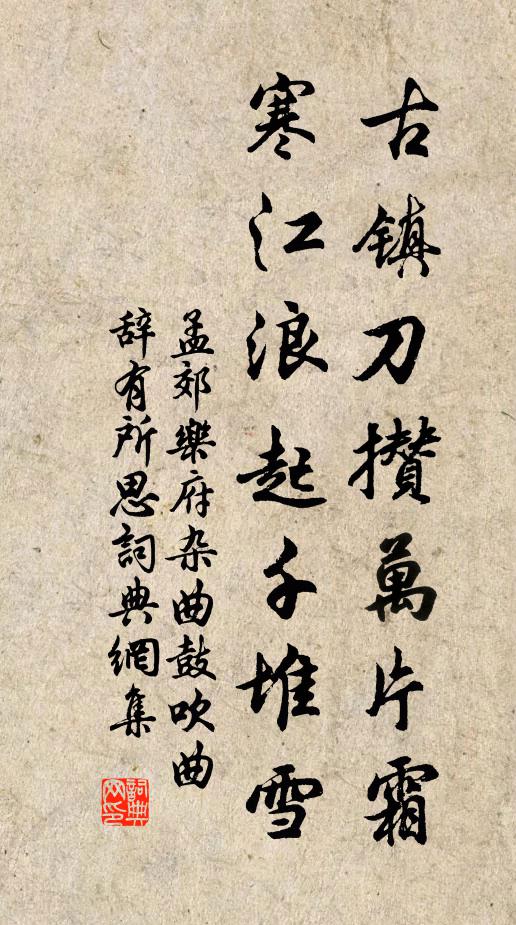 古镇刀攒萬片霜
寒江浪起千堆雪
孟郊樂府杂曲鼓吹曲
辞有所思詞典網集
詞典
网印